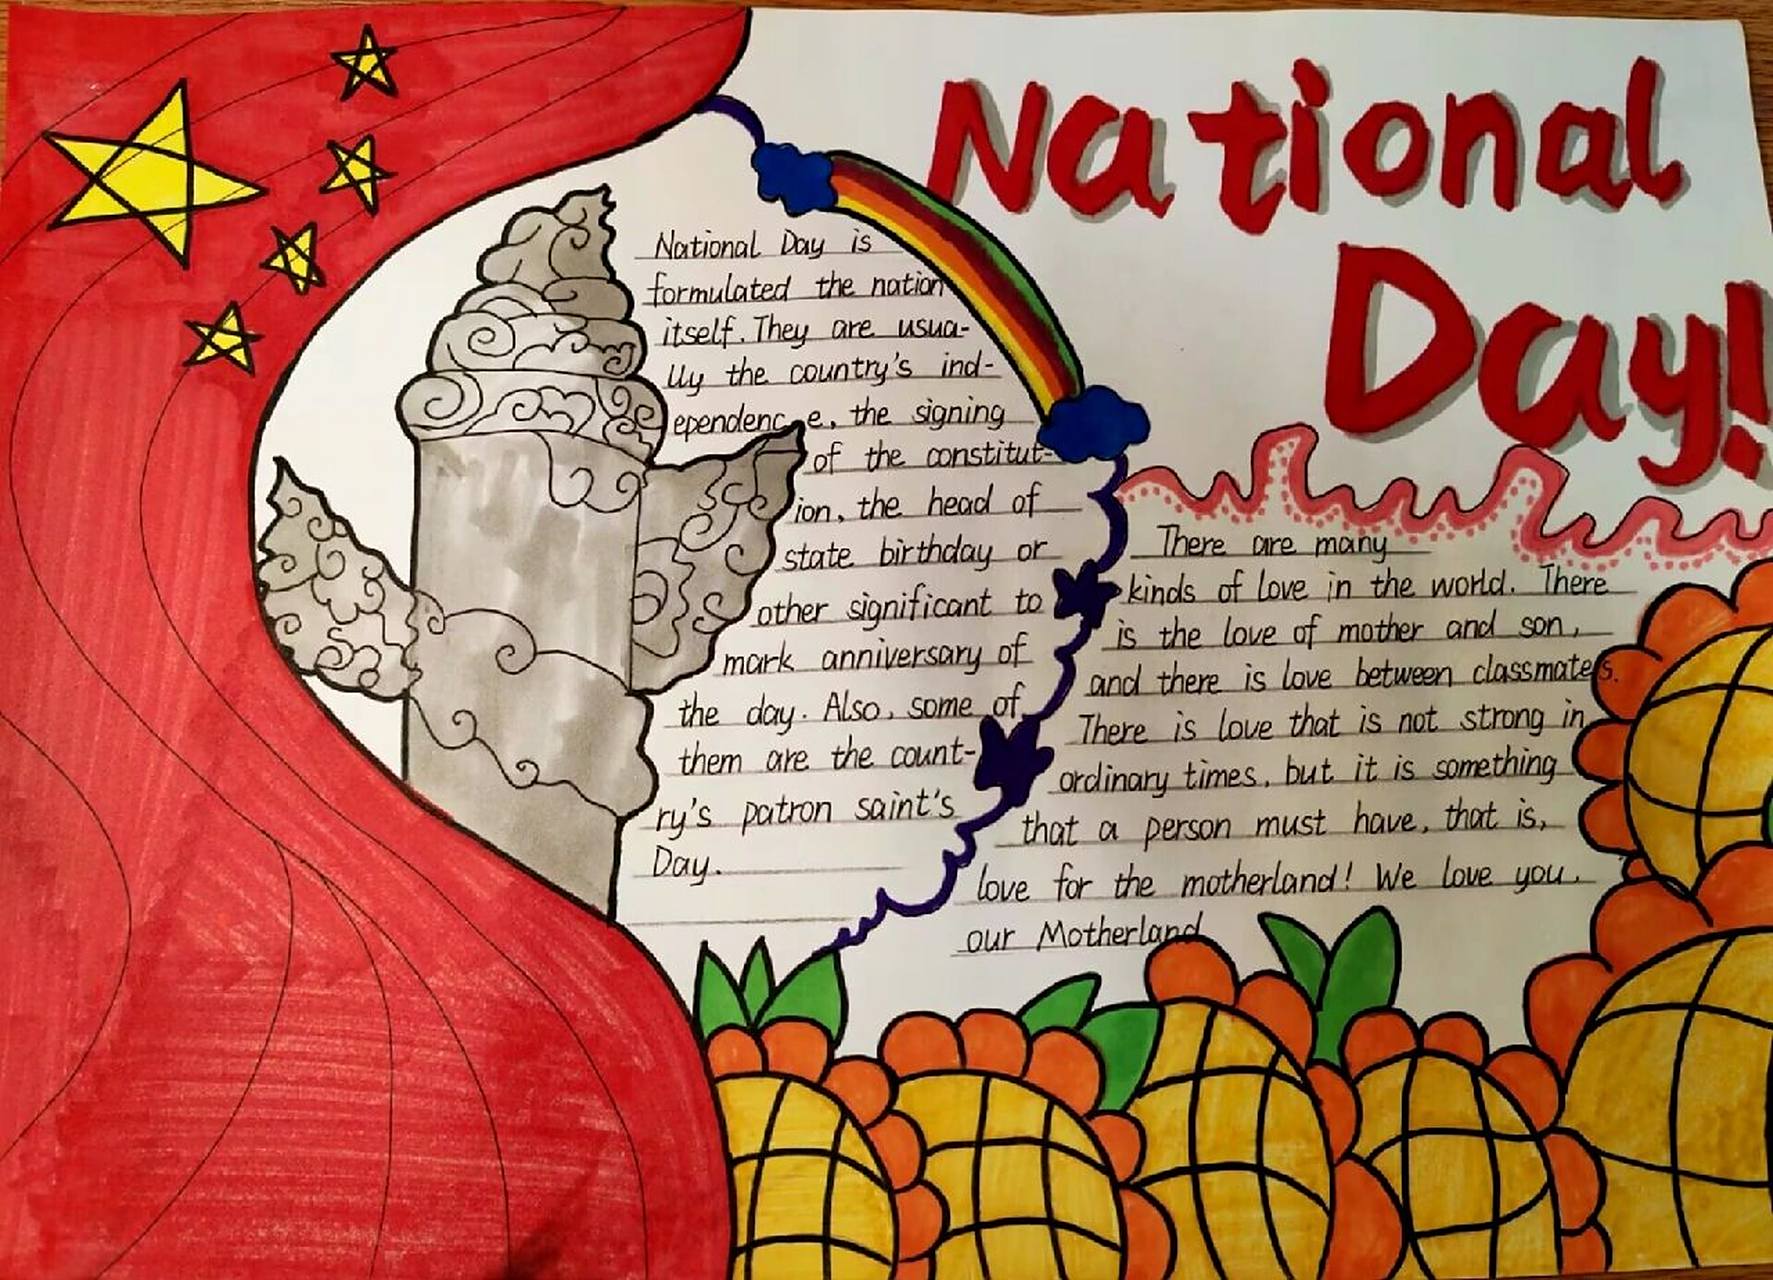 National
Day!
National Day is
formulated the nation
itself. They are usua-
lly the country's ind-
ependenc e, the signing
of the constitut-
ion, the head of
state birthday or
other significant to
mark anniversary of
the day. Also, some of
them are the count-
ry's patron saint's
Day.
There are many
kinds of love in the world. There
is the love of mother and son,
and there is love between classmates.
There is love that is not strong in
ordinary times, but it is something
that a person must have, that is,
love for the motherland! We love you.
our Motherland